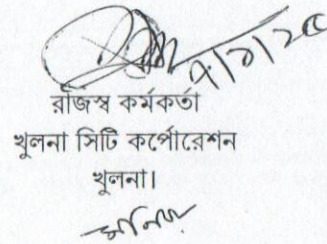 ৭/১/২৫
রাজস্ব কর্মকর্তা
খুলনা সিটি কর্পোরেশন
খুলনা।